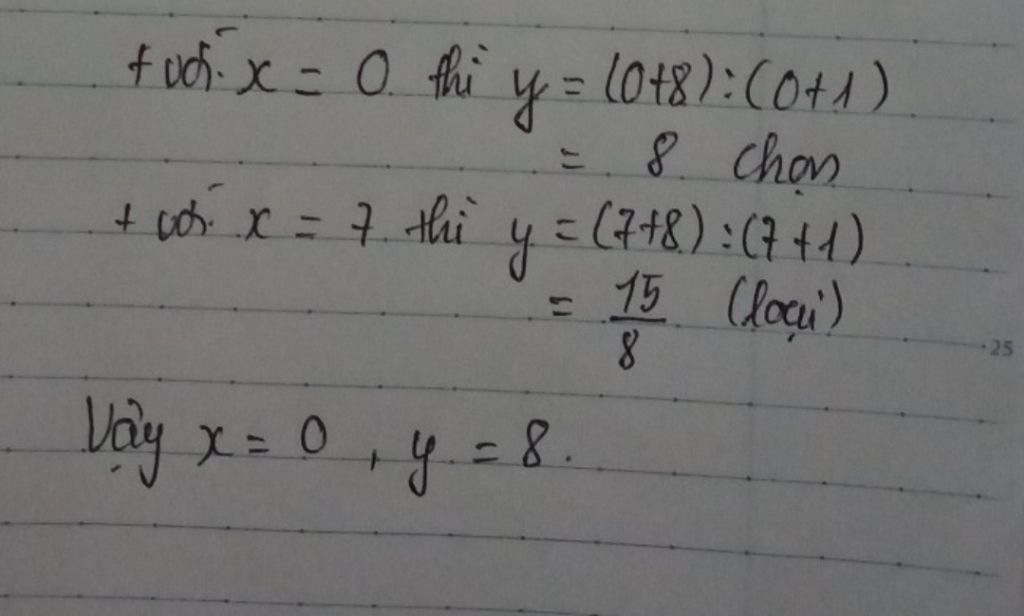 + với x = 0 thì y = (0+8):(0+1)
= 8 chọn
+ với x = 7 thì y = (7+8):(7+1)
= 15/8 (loại)
25
Vậy x = 0, y = 8.